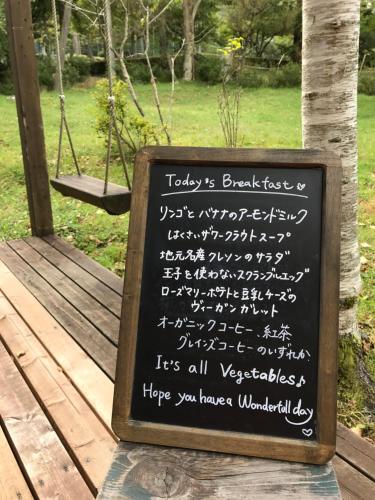 Today's Breakfast♡
リンゴと バナナのアーモンドミルク
はくさいザワークラウトスープ
地元名産クレソンのサラダ
玉子を使わないスクランブルエッグ
ローズマリーポテトと豆乳チーズの
ヴィーガン ガレット
オーガニックコーヒー、紅茶
グレインズコーヒーのいずれか
It's all Vegetables♪
Hope you have a Wonderfull day
♡